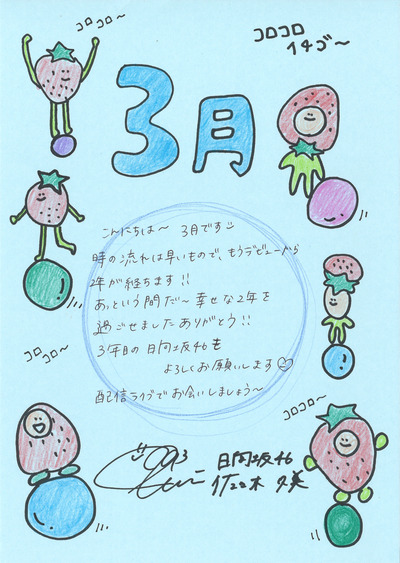 コロコロ〜
コロコロ
イチゴ〜
3月
こんにちは〜 3月です
時の流れは早いもので、もうデビューから
2年が経ちます!!
あっという間だ〜 幸せな2年を
過ごせました ありがとう!!
3年目の日向坂46も
よろしくお願いします
配信ライブでお会いしましょう〜
コロ
コロ〜
コロコロ〜
日向坂46
佐々木 美